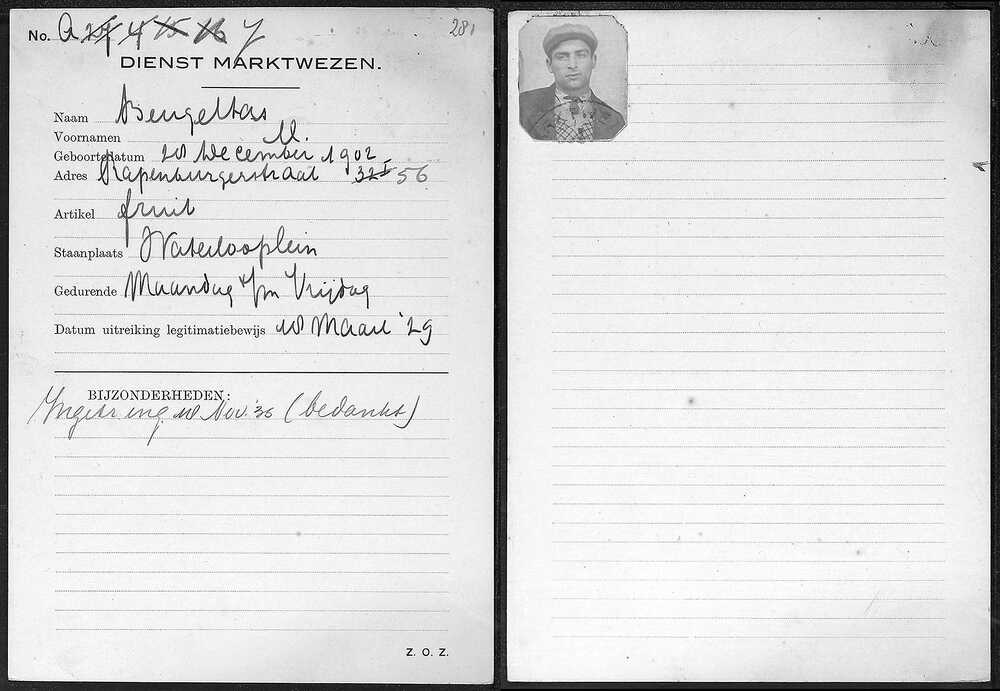 No. A 4 15 16 7
281
DIENST MARKTWEZEN.
Naam Beugeltas
Voornamen M.
Geboortedatum 28 December 1902
Adres Rapenburgerstraat 32 I 56
Artikel fruit
Staanplaats Waterlooplein
Gedurende Maandag t/m Vrijdag
Datum uitreiking legitimatiebewijs 18 Maart '29
BIJZONDERHEDEN:
Ingetr. ing. 18 Nov. '35 (bedankt)
Z. O. Z.